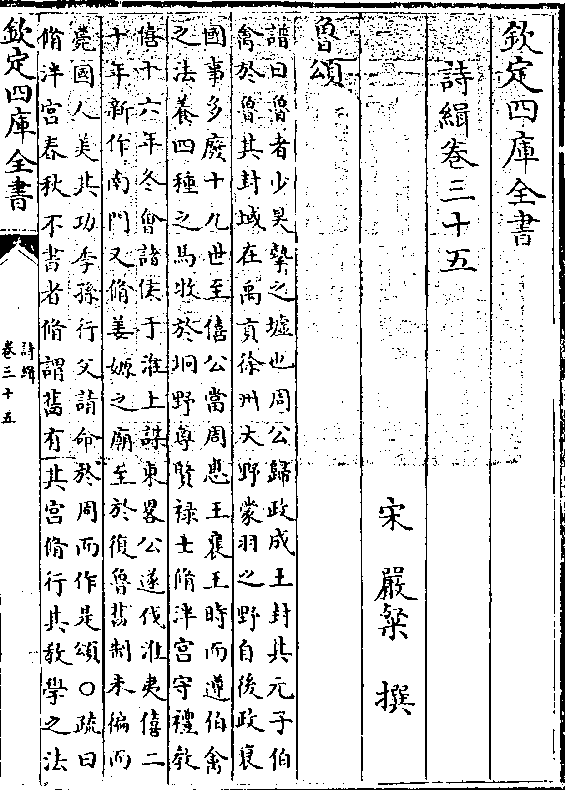 欽定四庫全書
詩緝卷三十五
宋 嚴粲 撰
魯頌
譜曰魯者少昊摯之墟也周公歸政成王封其元子伯
禽於魯其封域在禹貢徐州大野蒙羽之野自後政衰
國事多廢十九世至僖公當周惠王襄王時而遵伯禽
之法養四種之馬牧於坰野尊賢禄士脩泮宫守禮教
僖十六年冬會諸侯于淮上謀東畧公遂伐淮夷僖二
十年新作南門又脩姜嫄之廟至於復魯舊制未徧而
薨國人美其功季孫行父請命於周而作是頌○疏曰
脩泮宫春秋不書者脩謂舊有其宫脩行其教學之法
欽定四庫全書
詩緝
卷三十五